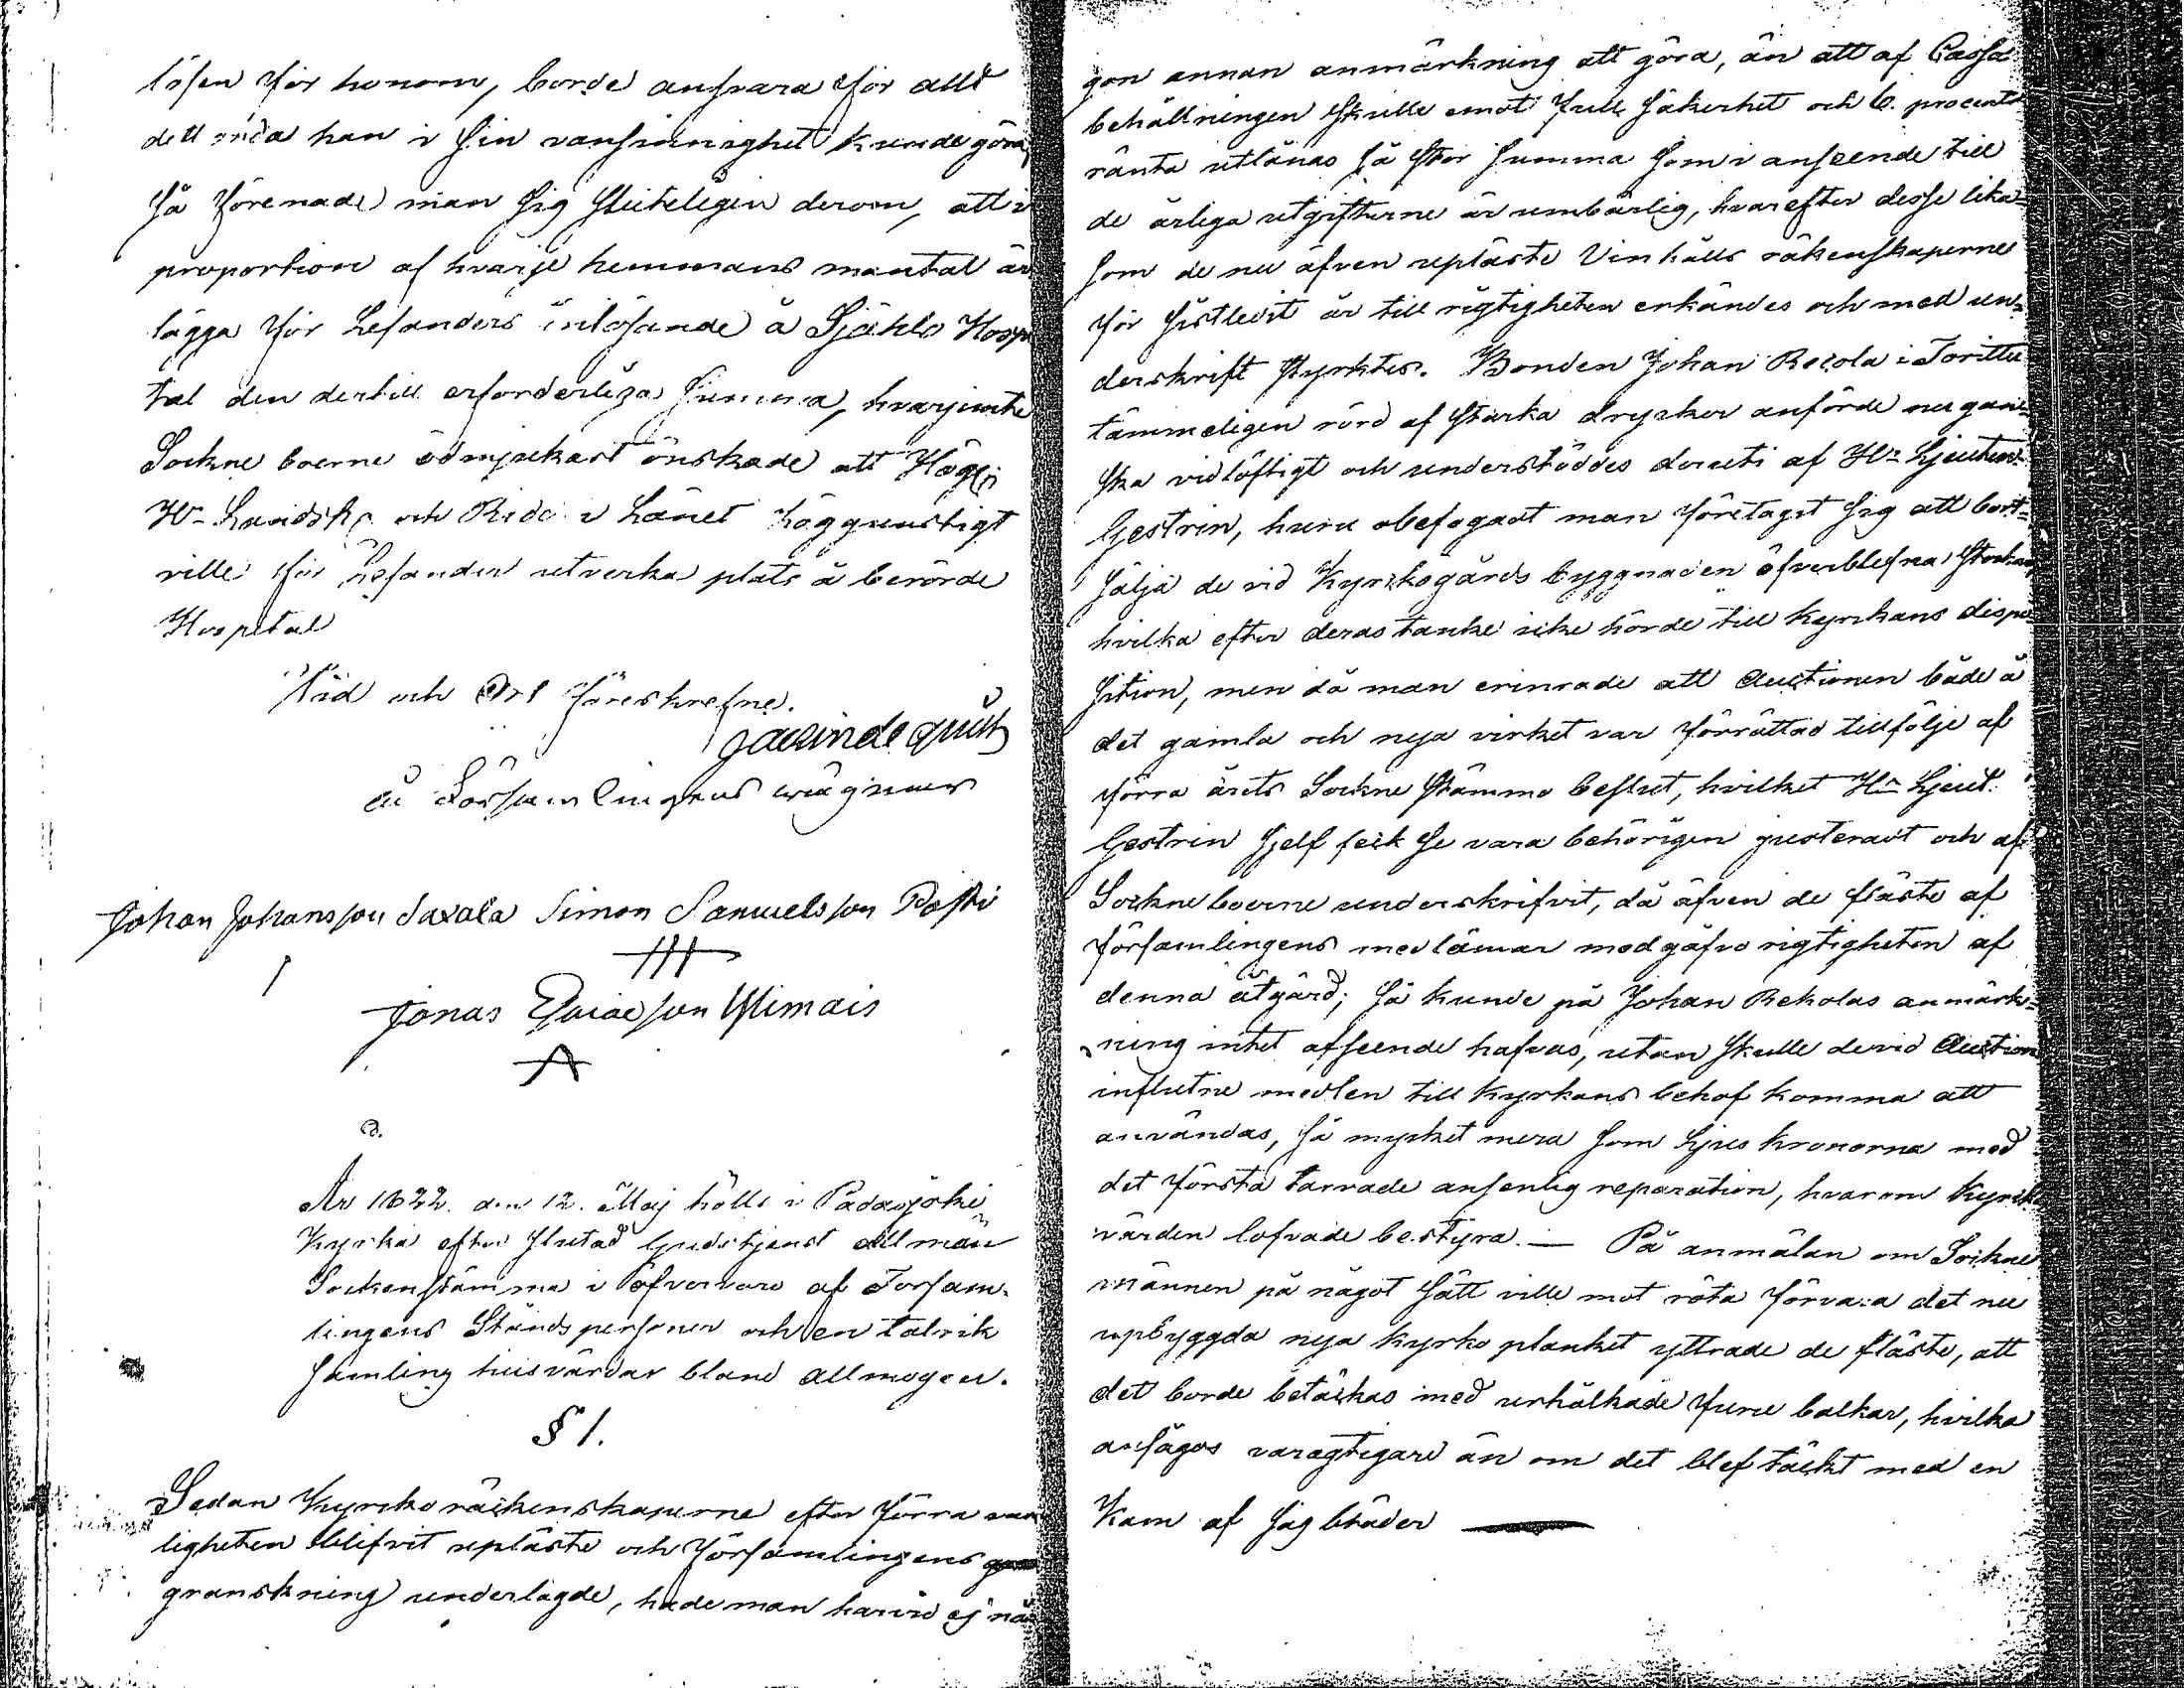 lösen för honom, borde ansvara för allt
dett onda han i sin vansinnighet kunde göra,
så förenade man sig sluteligen derom, att i
proportion af hvarje hemmans mantal
lägga för Lefanders inlösande å Själö Hospi
tal den dertill erforderliga summa, hvarjemte
Sockne boerne ödmjukast önskade att Högv.
Hr Landsh. och Ridd. i Länet höggunstigt
ville för Lefander utverka plats å berörde
Hospital
Tid och Ort föreskrefne.
å Församlingens wägnar
Johan Johansson Saxala Simon Samuelsson
Jonas Esaiasson Ylimais
År 1822. den 12. Maj hölls i Padasjoki
Kyrka efter slutad Gudstjenst allmän
Sockenstämma i öfvervaro af Försam-
lingens Ståndspersoner och en talrik
samling husvärdar bland allmogen.
§ 1.
Sedan Kyrko räkenskaperne efter förra van
ligheten blifvit upläste och församlingens
granskning underlagde, hade man harvid ej nå
gon annan anmärkning att göra, än att af Cassa
behållningen skulle emot full säkerhet och 6. procents
ränta utlånas så stor summa som i anseende till
de årliga utgifterne är umbärlig, hvarefter desse lika-
som de nu äfven upläste Vinhålls räkenskaperne
för sistledit år till rigtigheten erkändes och med un-
derskrift styrktes. Bonden Johan Recola i Torittu
tämmeligen rörd af starka drycker anförde nu gan-
ska vidlöftigt och understöddes deruti af Hr Ljeuten.
Gestrin, huru obefogadt man företagit sig att bort-
sälja de vid Kyrkogårds byggnaden öfverblefna stockar
hvilka efter deras tanke icke hörde till kyrkans dispo
sition, men då man erinrade att Auctionen både å
det gamla och nya virket var förrättad tillfölje af
förra årets Sockne stämmo beslut, hvilket Hr Ljeut.
Gestrin sjelf feck se vara behörigen justeradt och af
Sockneboerne underskrifvit, då äfven de fläste af
församlingens medlämar medgåfvo rigtigheten af
denna åtgärd; så kunde på Johan Rekolas anmärk-
ning intet afseende hafvas, utan skulle de vid Auction
influtne medlen till kyrkans behof komma att
användas, så mycket mera som ljus kronorna med
det första tarvade ansenlig reparation, hvarom kyrk
värden lofvade bestyra. — På anmälan om Sockne
männen på något sätt ville mot röta förvara det nu
upbyggda nya kyrko planket yttrade de fläste, att
det borde betäckas med urhålkade furu balkar, hvilka
ansågos varagtigare än om det blef täckt med en
Kam af sågbräder